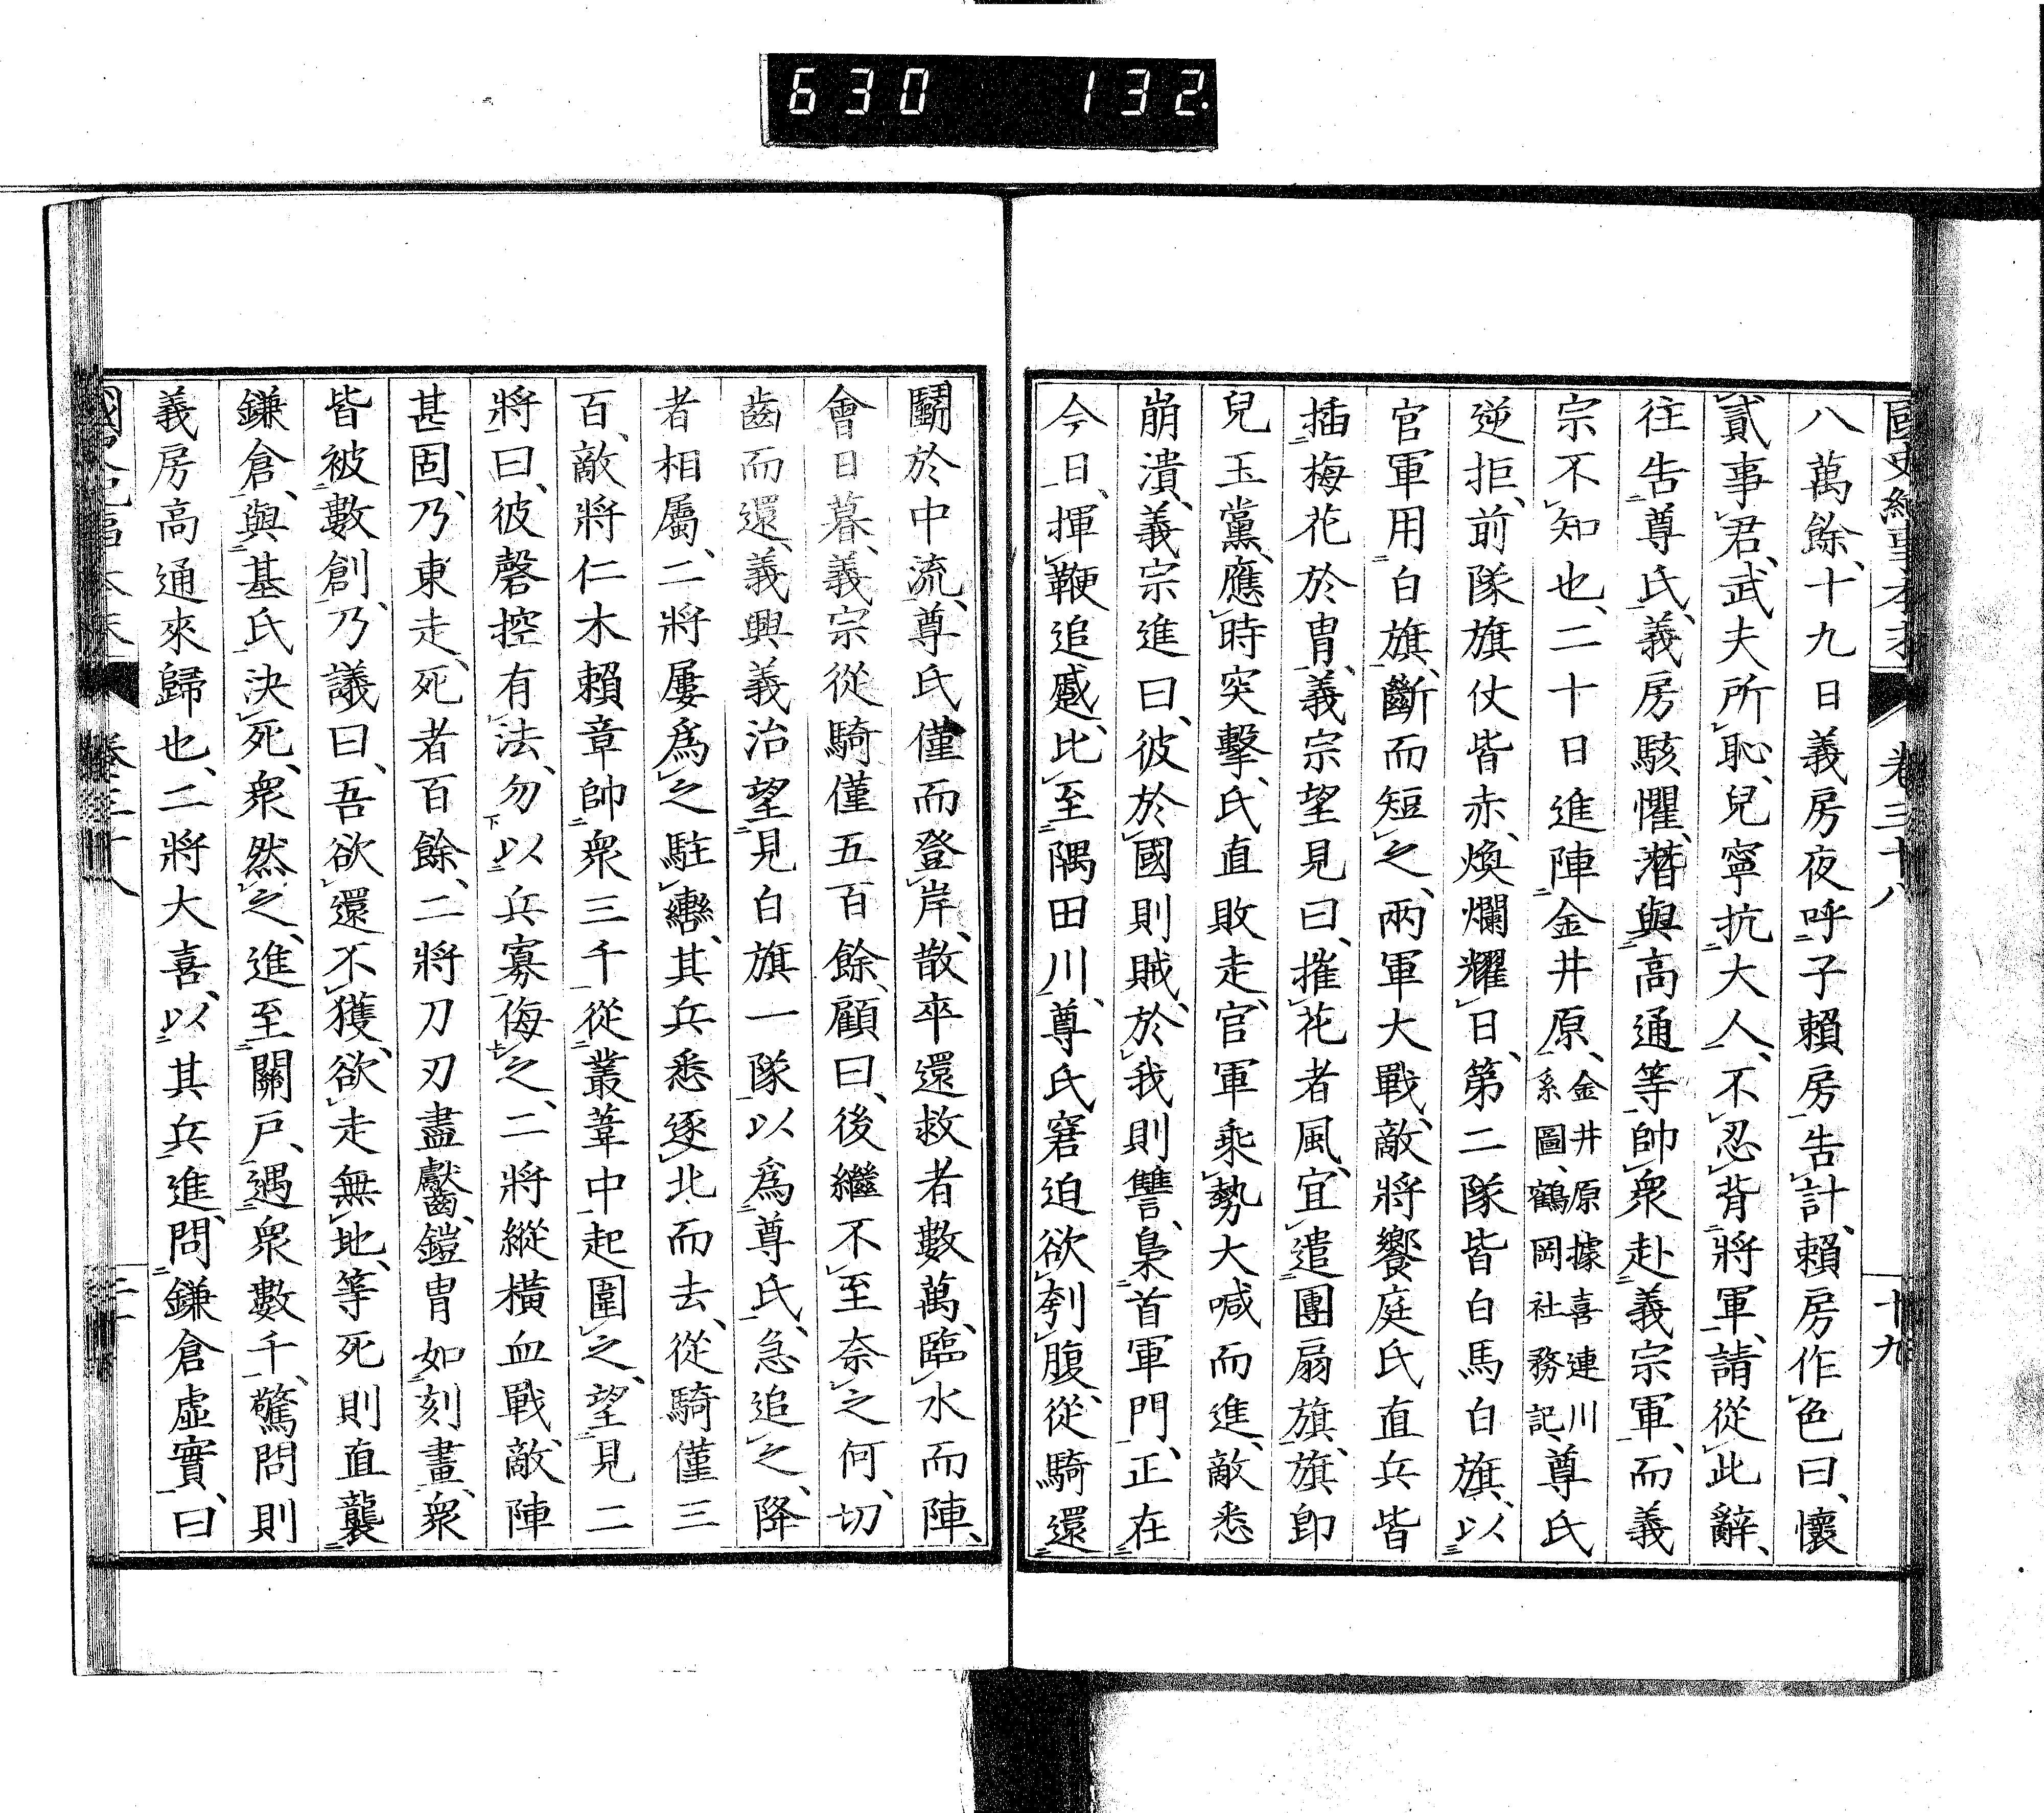 630 132.
國史紀事本末 卷三十八 十九
八萬餘、十九日義房夜呼子賴房告計、賴房作色曰、懷
貳事君、武夫所恥、兒寧抗大人、不忍背將軍、請從此辭、
往告尊氏、義房駭懼、潛與高通等帥衆赴義宗軍、而義
宗不知也、二十日進陣金井原、金井原據喜連川系圖、鶴岡社務記、尊氏
逆拒、前隊旗仗皆赤、煥爛耀日、第二隊皆白馬白旗、以
官軍用白旗、斷而短之、兩軍大戰、敵將饗庭氏直兵皆
插梅花於冑、義宗望見曰、摧花者風、宜遣團扇旗、旗卽
兒玉黨、應時突擊、氏直敗走、官軍乘勢大喊而進、敵悉
崩潰、義宗進曰、彼於國則賊、於我則讐、梟首軍門、正在
今日、揮鞭追蹙、比至隅田川、尊氏窘迫欲刳腹、從騎還
鬭於中流、尊氏僅而登岸、散卒還救者數萬、臨水而陣、
會日暮、義宗從騎僅五百餘、顧曰、後繼不至奈之何、切
齒而還、義興義治望見白旗一隊、以爲尊氏、急追之、降
者相屬、二將屢爲之駐轡、其兵悉逐北而去、從騎僅三
百、敵將仁木賴章帥衆三千、從叢葦中起圍之、望見二
將曰、彼磬控有法、勿以兵寡侮之、二將縱橫血戰、敵陣
甚固、乃東走、死者百餘、二將刀刃盡齾、鎧冑如刻畫、衆
皆被數創、乃議曰、吾欲還不獲、欲走無地、等死則直襲
鎌倉、與基氏決死、衆然之、進至關戶、遇衆數千、驚問則
義房高通來歸也、二將大喜、以其兵進、問鎌倉虛實、曰
國史紀事本末 卷三十八 二十